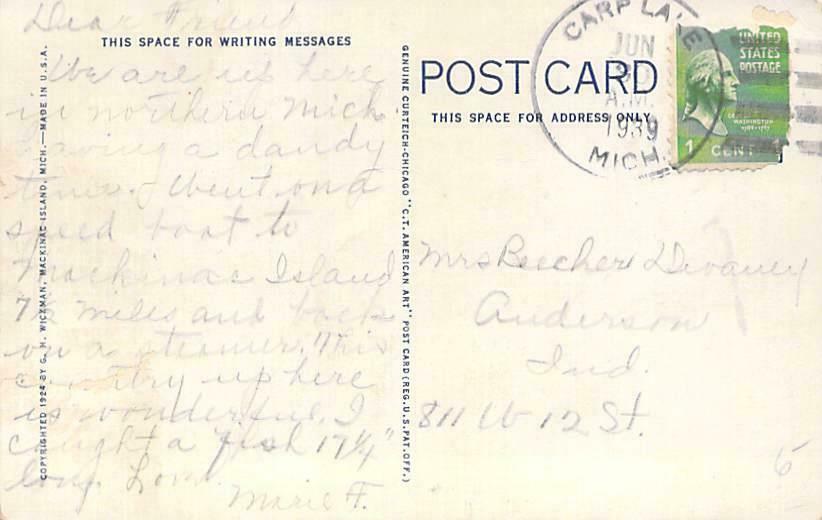 Dear Friend
THIS SPACE FOR WRITING MESSAGES
We are up here
in northern Mich
having a dandy
time. Went on a
speed boat to
Mackinac Island
7½ miles and back
on a steamer. This
country up here
is wonderful. I
caught a fish 17¼"
long. Love.
Marie F.
COPYRIGHTED 1924 BY G. H. WICKMAN, MACKINAC ISLAND, MICH.—MADE IN U.S.A.
GENUINE CURTEICH-CHICAGO "C.T. AMERICAN ART" POST CARD (REG. U.S. PAT. OFF.)
POST CARD
THIS SPACE FOR ADDRESS ONLY
CARP LAKE
JUN
A.M.
1939
MICH.
UNITED
STATES
POSTAGE
WASHINGTON
1 CENT 1
Mrs Beecher Devaney
Anderson
Ind.
811 W 12 St.
5